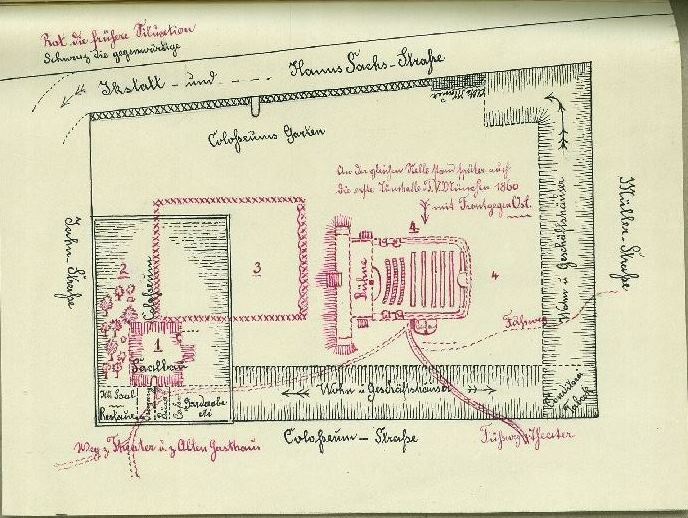 Rot die frühere Situation
Schwarz die gegenwärtige
Ikstatt - und - - - -
Hanns Sachs-Straße
Colosseums Garten
An der gleichen Stelle stand später auch
die erste Turnhalle T.V. München 1860
mit Front gegen Ost.
Jahn-Straße
Müller-Straße
Wohn u Geschäftshäuser
Colosseum
2
1
3
4
4
Bühne
Saalbau
Saal
Restaur
Garderobe
Fahrweg
Wohn u Geschäftshäuser
Weg z Theater u z Alten Gasthaus
Colosseum - Straße
Fußweg z Theater